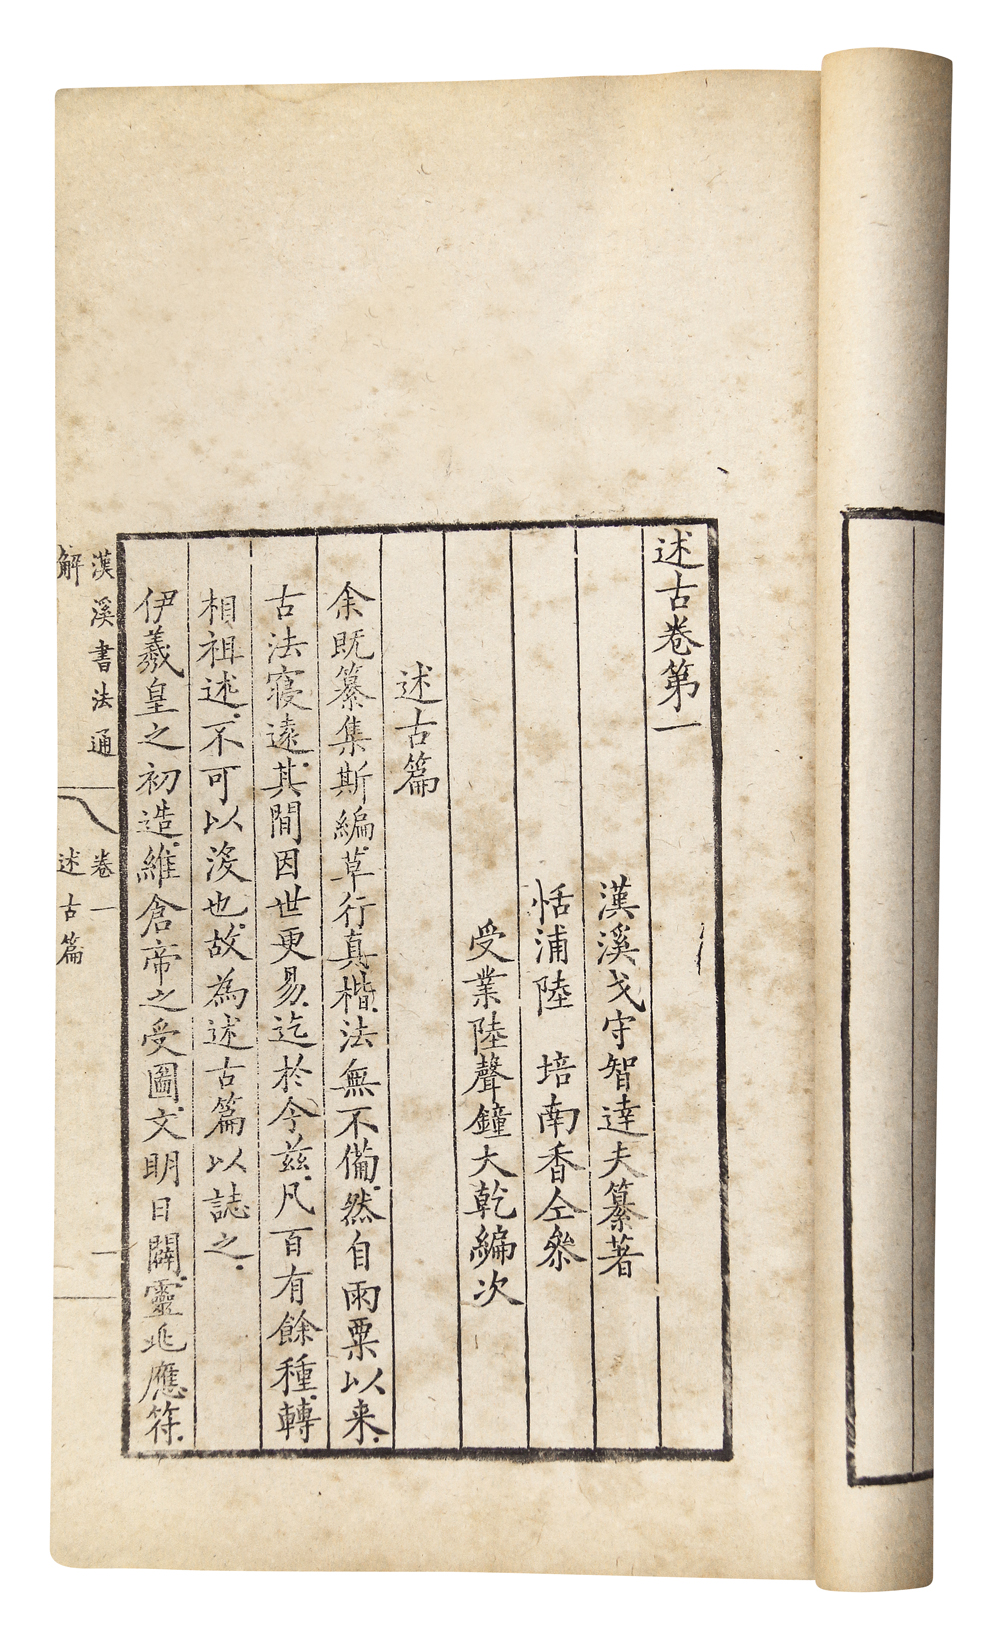 述古卷第一
漢溪戈守智達夫纂著
恬浦陸　培南香仝叅
受業陸聲鐘大乾編次
述古篇
余既纂集斯編.草行真楷.法無不備.然自雨粟以来.
古法寖遠.其間因世更易.迄於今兹.凡百有餘種.轉
相祖述.不可以没也.故為述古篇以誌之.
伊羲皇之初造.維倉帝之受圖.文明日闢.靈兆應符.
漢溪書法通
解
卷一
述古篇
一